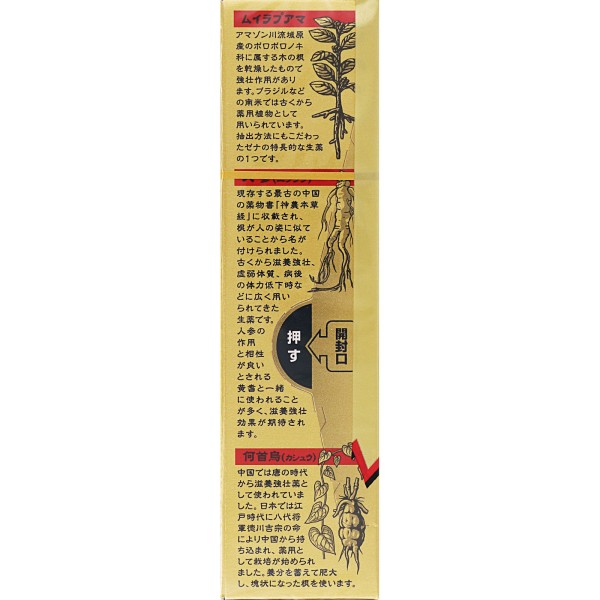 ムイラプアマ
アマゾン川流域原
産のボロボロノキ
科に属する木の根
を乾燥したもので
強壮作用があり
ます。ブラジルなど
の南米では古くから
薬用植物として
用いられています。
抽出方法にもこだわっ
たゼナの特長的な生薬
の1つです。
現存する最古の中国
の薬物書『神農本草
経』に収載され、
根が人の姿に似て
いることから名が
付けられました。
古くから滋養強壮、
虚弱体質、病後
の体力低下時な
どに広く用い
られてきた
生薬です。
人参の
作用
と相性
が良い
とされる
黄耆と一緒
に使われること
が多く、滋養強壮
効果が期待され
ます。
開封口
押す
何首烏(カシュウ)
中国では唐の時代
から滋養強壮薬と
して使われていま
した。日本では江
戸時代に八代将
軍徳川吉宗の命
により中国から持
ち込まれ、薬用と
して栽培が始められ
ました。養分を蓄えて肥大
し、塊状になった根を使います。